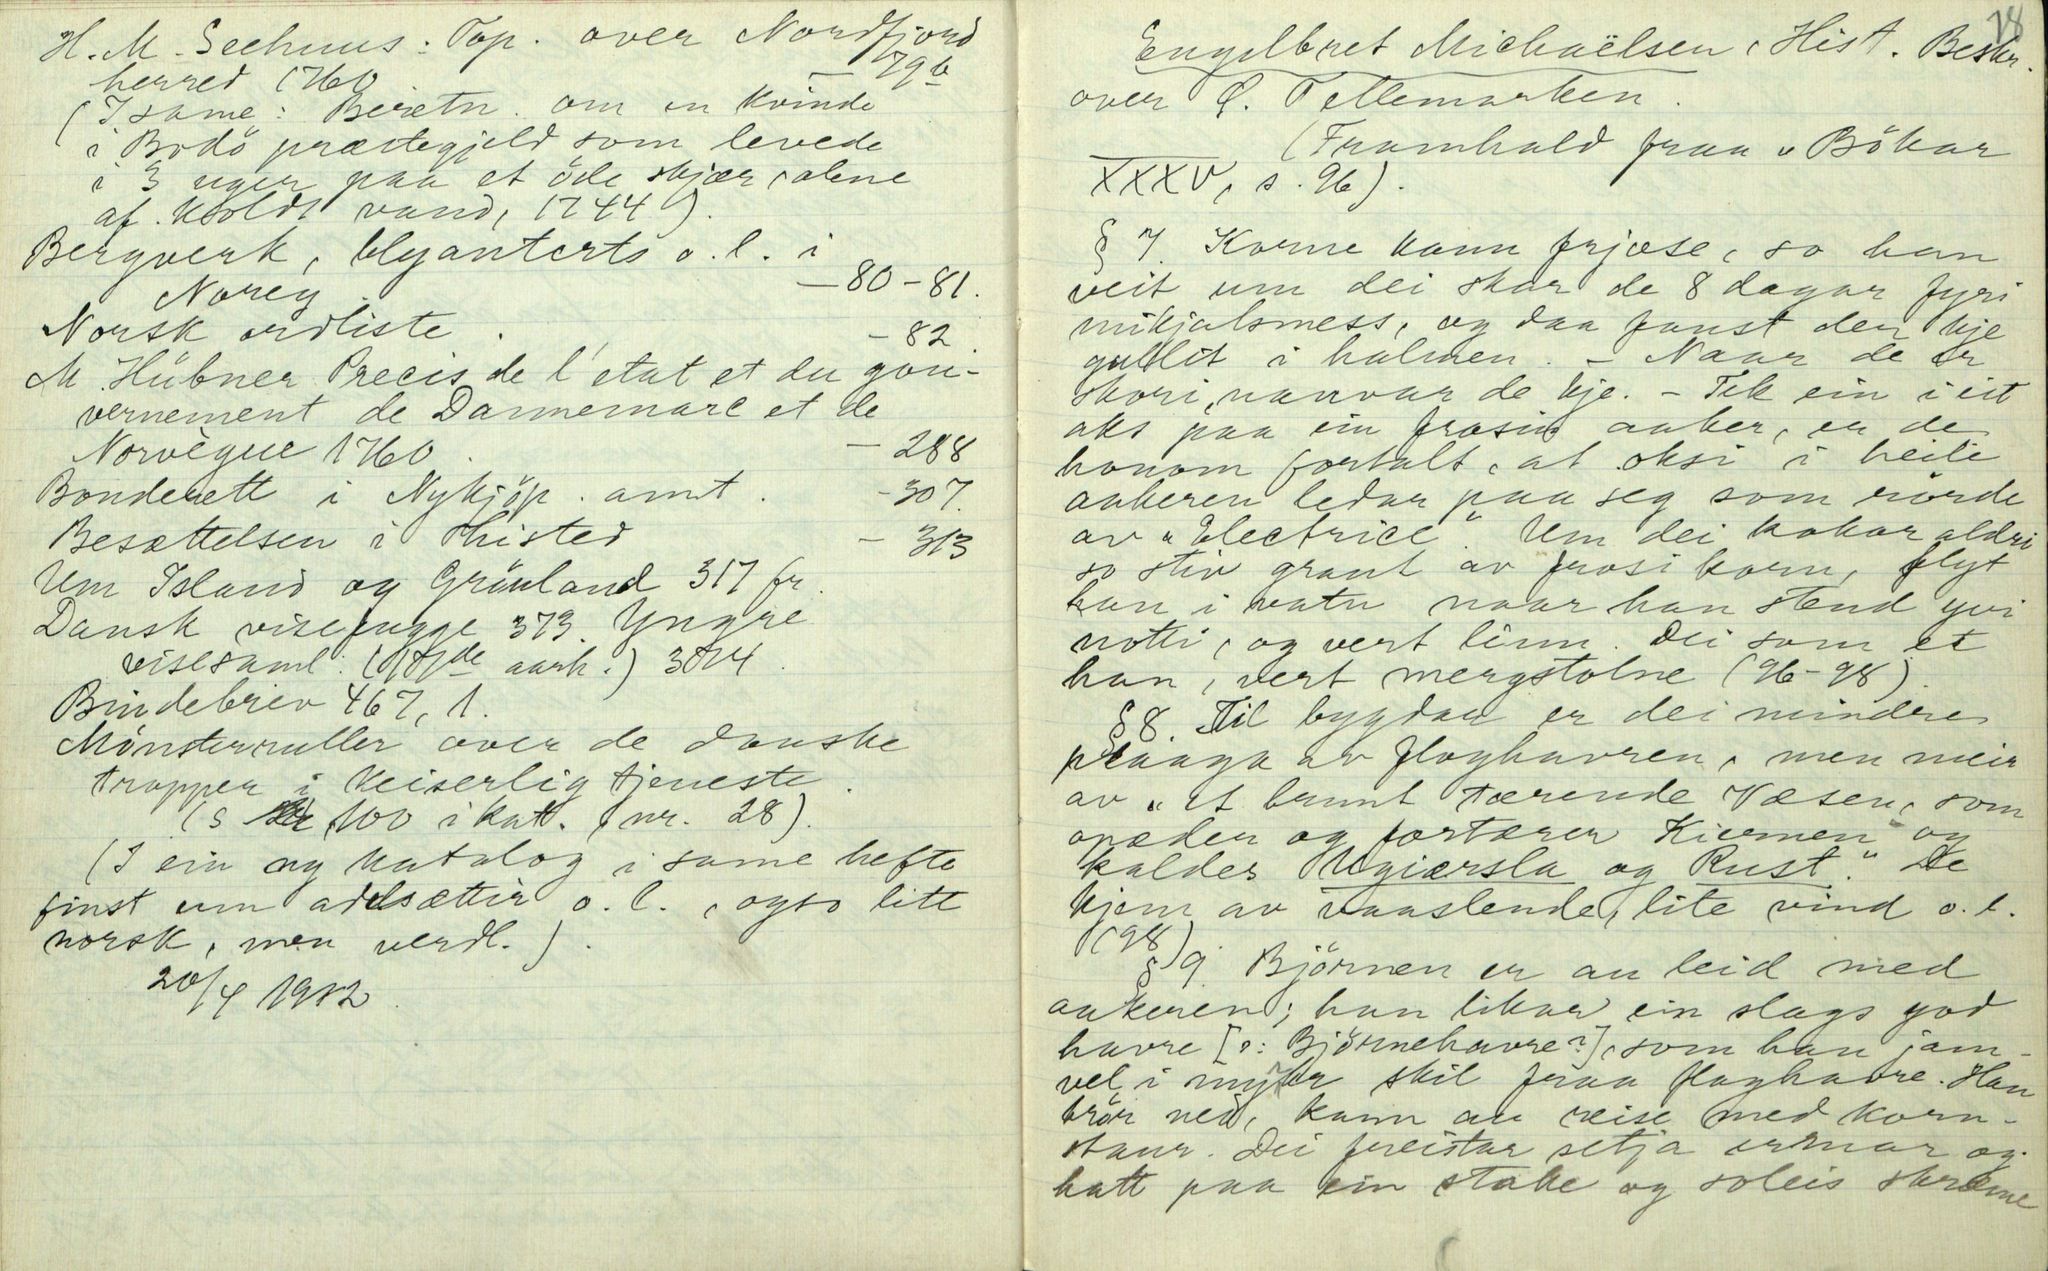 H. M. Seehuus: Top. over Nordfjord
herred 1760 — 79b
(I same: Beretn. om en kvinde
i Bodö præstegjeld som levede
i 3 uger paa et öde skjær, alene
af koldt vand, 1744).
Bergverk, blyanterts o. l. i
Noreg. — 80-81.
Norsk ordliste. - 82.
M. Hübner Precis de l'etat et du gou-
vernement de Dannemarc et de
Norvègue 1760. — 288
Bonderett i Nykjöp. amt. - 307.
Besættelsen i Thisted — 313
Um Island og Grönland 317 fr.
Dansk visefugge 373. Yngre
visesaml. (17de aarh.) 374.
Bindebrev 467, 1.
Mönsterruller over de danske
tropper i keiserlig tjeneste.
(s 100 i kat. nr. 28).
(I ein ny katalog i same hefte
finst um adelsættir o. l., ogso litt
norsk, men verdl.).
20/4 1912.
18
Engelbret Michaëlsen, Hist. Beskr.
over Ö. Tellemarken.
(Framhald fraa v Bökar
XXXV, s. 96).
§ 7. Korne kann frjose, so han
veit um dei skar de 8 dagar fyri
mikjalsmess, og daa funst den kje
gullit i halmen. - Naar de er
skori, nauvar de kje. - Tek ein i eit
aks paa ein frosin aaker, er de
honom fortalt, at aksi i heile
aakeren ledar paa seg som rörde
av "Electrice". Um dei kokar aldri
so stiv graut av frosi korn, flyt
han i vatn naar han stend yvi
notti, og vert linn. Dei som et
han, vert mergstolne (96-98).
§ 8. Til bygdau er dei mindre
plaaga av floghavren, men meir
av "et brunt tærende Væsen, som
opæder og fortærer Kiernen og
kaldes Ugiærsla og Rust." De
kjem av vaaslende, lite vind o. l.
(98)
§ 9 Björnen er au leid med
aakeren; han likar ein slags god
havre [ɔ: Björnehavre?], som han jam-
vel i myrkr skil fraa floghavre. Han
trör ned, kann au reise med korn-
staur. Dei freistar setja ermar og
hatt paa ein stake og soleis skræme